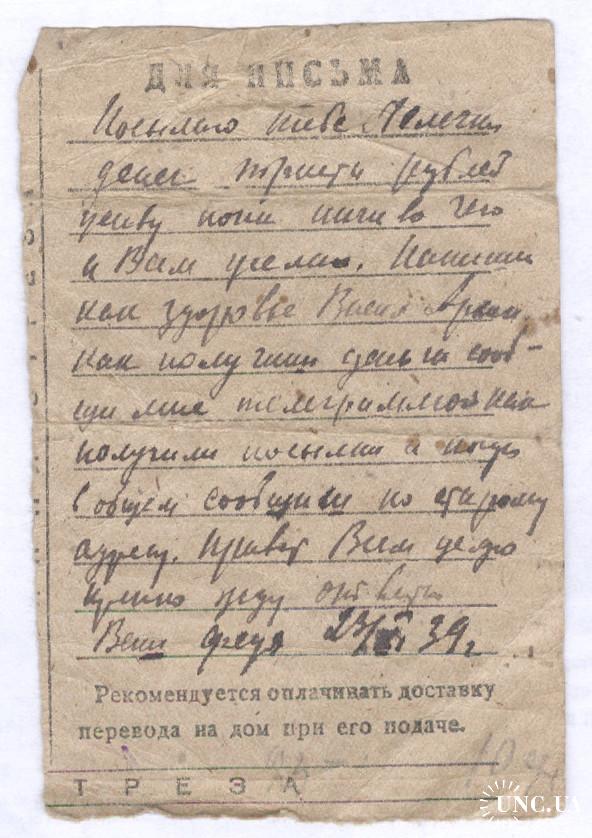 ДЛЯ ПИСЬМА
Посылаю тебе Лелечка
денег триста рублей
живу пока ничиво чего
и Вам желаю. Напиши
как здоровье Ваше
как получишь деньги сооб-
щи мне телеграммой как
получили посылки а
в общем сообщи по старому
адресу. Привет Всем целую
крепко жду ответа
Ваш Федя 23/XI 39 г
Рекомендуется оплачивать доставку
перевода на дом при его подаче.
ТРЕЗА
UNC.UA